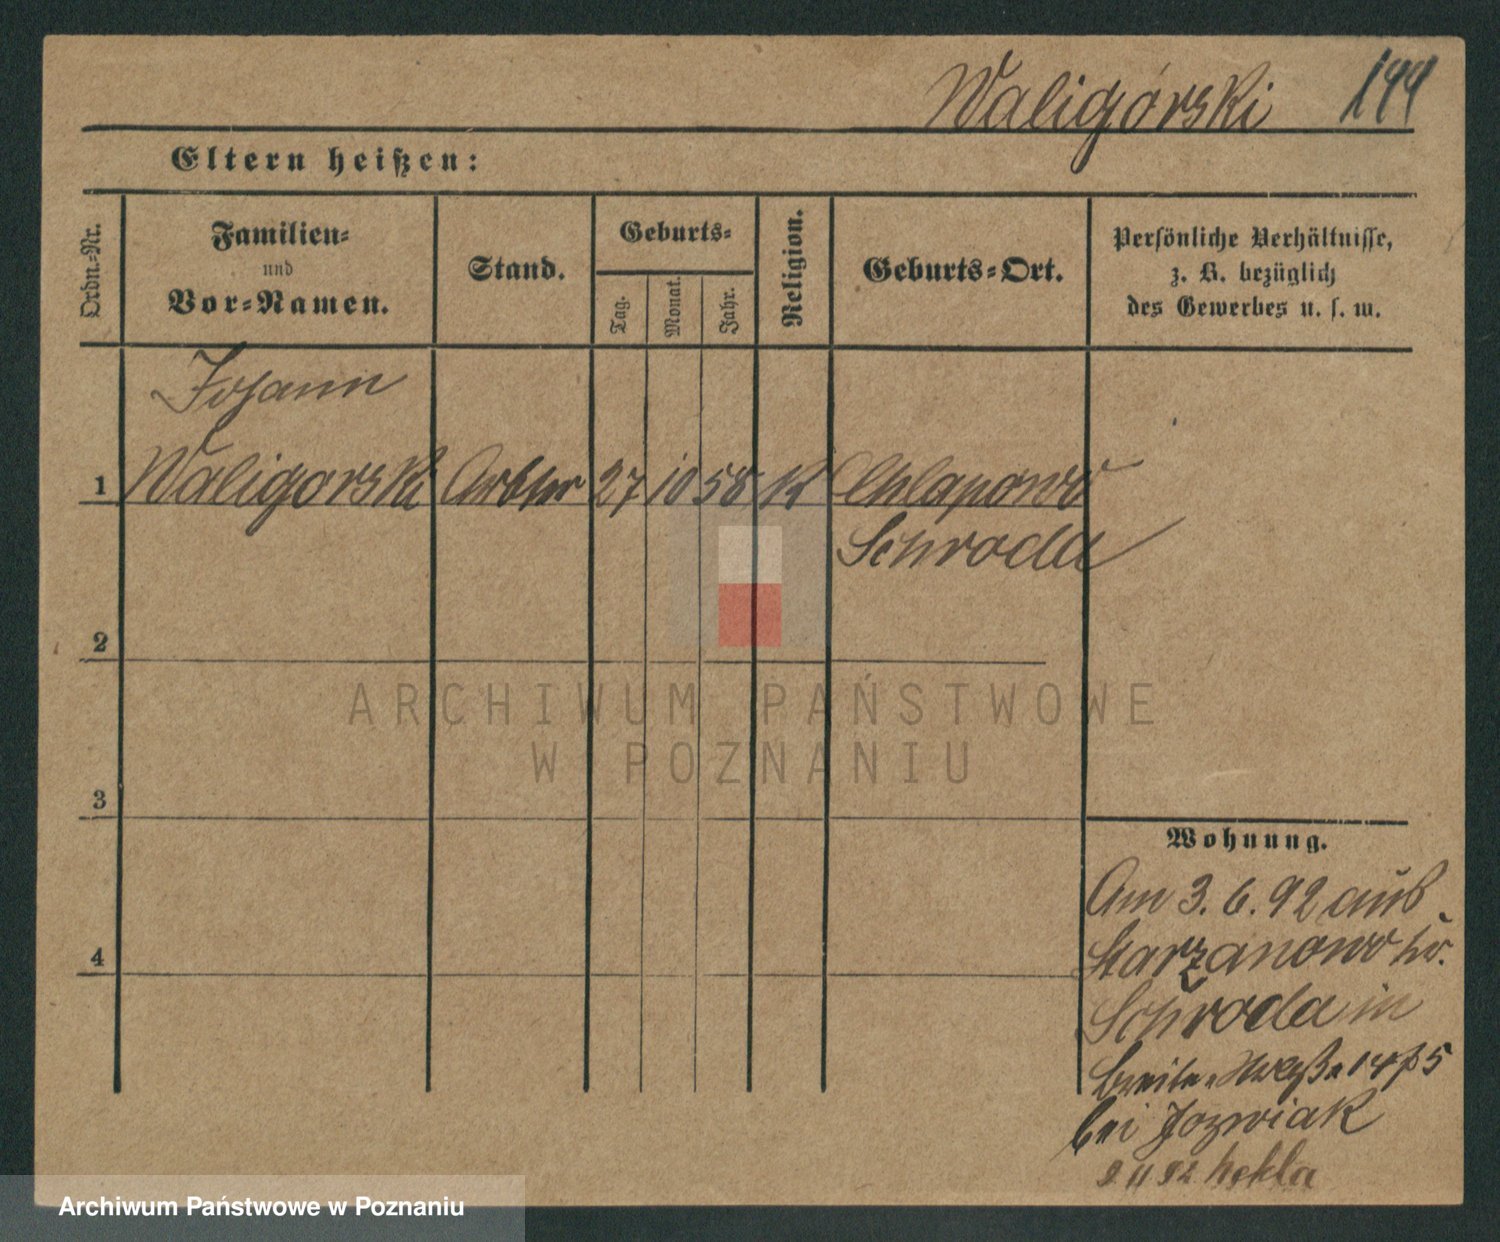 Waligórski 144
Eltern heißen:
Ordn.-Nr.
Familien-
und
Vor-Namen.
Stand.
Geburts-
Tag.
Monat.
Jahr.
Religion.
Geburts-Ort.
Persönliche Verhältnisse,
z. B. bezüglich
des Gewerbes u. s. w.
Johann
1 Waligorski Arbter 27 10 58 K Chlapowo
Schroda
2
ARCHIWUM PAŃSTWOWE
W POZNANIU
3
Wohnung.
Am 3. 6. 92 aus
Starzanowo kr.
4
Schroda in
Breite-Straße 14
bei Jozwiak
2 11 92
Archiwum Państwowe w Poznaniu